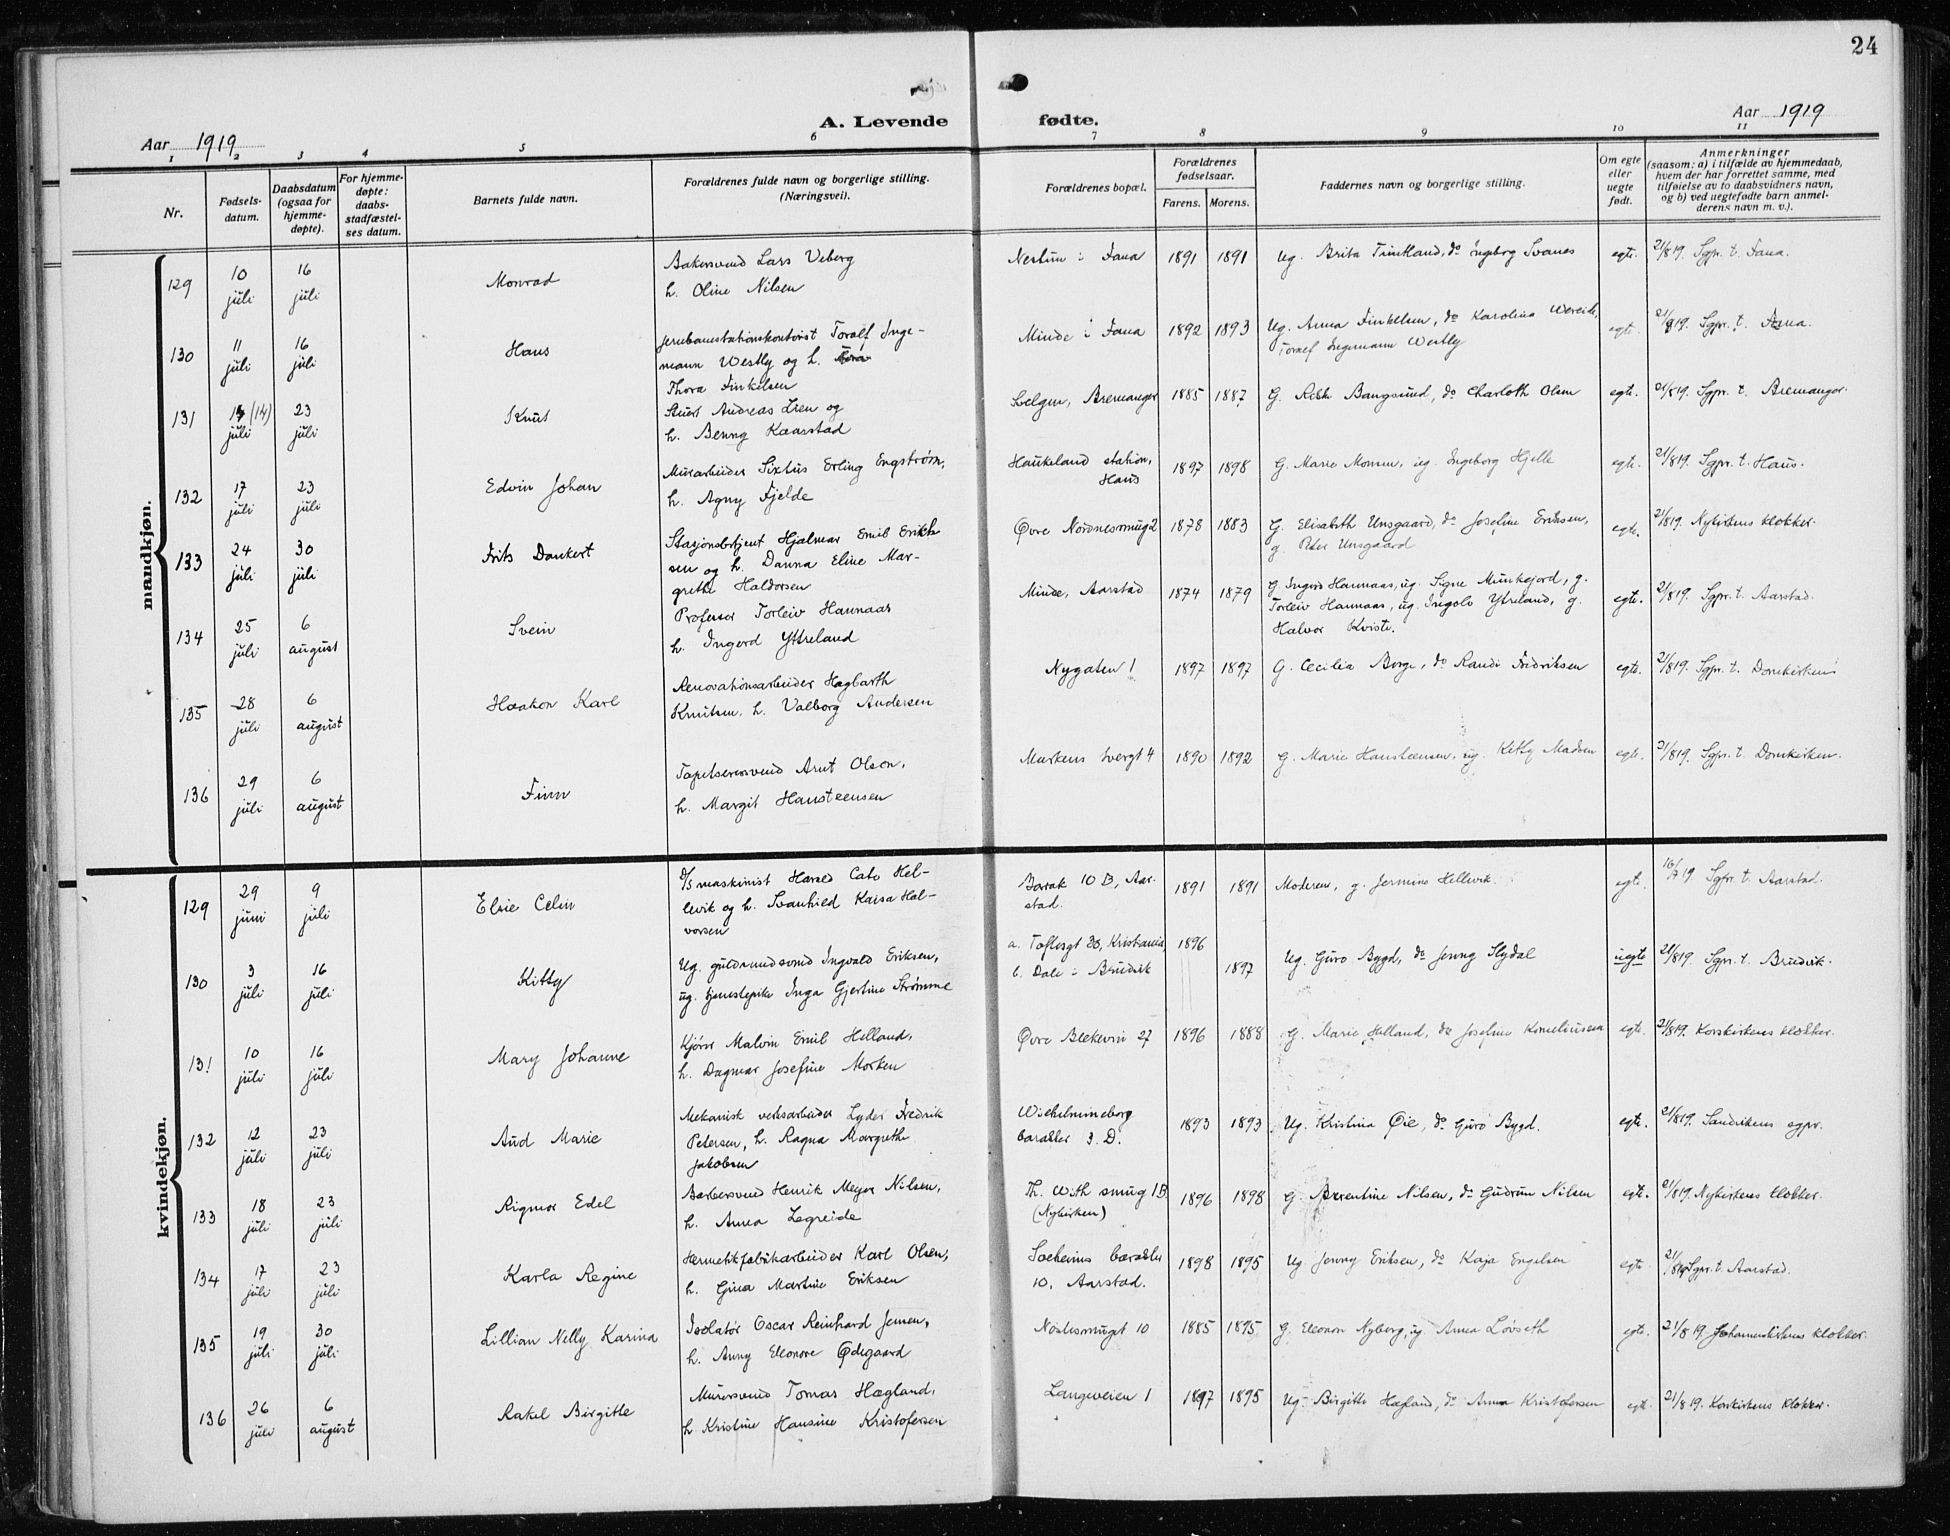 24
Aar 1919
A. Levende
fødte.
Aar 1919
1 2 3 4 5 6 7 8 9 10 11
Nr.
Fødsels-
datum.
Daabsdatum
(ogsaa for
hjemme-
døpte).
For hjemme-
døpte:
daabs-
stadfæstel-
ses datum.
Barnets fulde navn.
Forældrenes fulde navn og borgerlige stilling.
(Næringsvei).
Forældrenes bopæl.
Forældrenes
fødselsaar.
Farens. Morens.
Faddernes navn og borgerlige stilling.
Om egte
eller
uegte
født.
Anmerkninger
(saasom: a) i tilfælde av hjemmedaab,
hvem der har forrettet samme, med
tilføielse av to daabsvidners navn,
og b) ved uegtefødte barn anmel-
derens navn m. v.).
mandkjøn.
129 10 juli 16 juli Monrad
Bakersvend Lars Veberg
h. Oline Nilsen
Nestun i Fana 1891 1891 Ug. Brita Timtland, do Ingeborg Svanes egte. 21/8 19. Sgpr. t. Fana.
130 11 juli 16 juli Hans
Jernbanestationskontorist Toralf Inge-
mann Westly og h.
Thora Finkelsen
Minde i Fana 1892 1893 Ug. Anna Finkelsen, do Karolina Wereide,
Toralf Ingemann Westly
egte. 21/8 19. Sgpr. t. Fana.
131 (14) juli 23 juli Knut
Stuert Andreas Lien og
h. Benny Kaarstad
Kelgen, Bremanger 1885 1887 G. Rebk Bangsund, do Charloth Olsen egte. 21/8 19. Sgpr. t. Bremanger.
132 17 juli 23 juli Edvin Johan
Murarbeider Sixtus Erling Engstrøm,
h. Agny Fjelde
Haukeland station,
Haus
1897 1898 G. Marie Monsen, ug. Ingeborg Hjelle egte. 21/8 19. Sgpr. t. Haus.
133 24 juli 30 juli Frits Dankert
Stasjonsbetjent Hjalmar Emil Erikk
sen og h. Danna Eline Mar-
grethe Haldorsen
Øvre Nordnessmug 2 1878 1883 G. Elisabeth Unsgaard, do Josefine Eriksen,
g. Peter Unsgaard
egte. 21/8 19. Nykirkens klokker.
134 25 juli 6 august Svein
Professor Torleiv Hannaas
h. Ingerd Yttreland
Minde, Aarstad 1874 1879 G. Ingerd Hannaas, ug. Signe Munkejord, g.
Torleiv Hannaas, ug. Ingolv Yttreland, g.
Halvor Kviste.
egte. 21/8 19. Sgpr. t. Aarstad.
135 28 juli 6 august Haakon Karl
Renovationsarbeider Hagbarth
Knutsen, h. Valborg Andersen
Nygaten 1 1897 1897 G. Cecilia Borge, do Randi Fredriksen egte. 21/8 19. Sgpr. t. Domkirken
136 29 juli 6 august Finn
Tapetserersvend Arnt Olson,
h. Margit Hansteensen
Markens tvergt 4 1890 1892 G. Marie Hansteensen, ug. Kitty Madsen egte. 21/8 19. Sgpr. t. Domkirken.
kvindekjøn.
129 29 juni 9 juli Elsie Celin
D/S maskinist Harald Cato Hel-
levik og h. Svanhild Kaisa Hal-
vorsen
Barak 10 B, Aar-
stad.
1891 1891 Moderen, g. Jermine Hellevik. egte. 16/7 19. Sgpr. t. Aarstad.
130 3 juli 16 juli Kitty
Ug. guldsmedsvend Ingvald Eriksen,
ug. tjenestepike Inga Gjertine Strømme
a. Toftesgt 30, Kristiania, 1896
b. Dale i Bruvik 1897
Ug. Guro Bygd, do Jenny Flydal uegte 21/8 19. Sgpr. t. Bruvik.
131 10 juli 16 juli Mary Johanne
Kjører Malvin Emil Helland,
h. Dagmar Josefine Morken
Øvre Blekevei 27 1896 1888 G. Marie Helland, do Josefine Korneliussen egte. 21/8 19. Korskirkens klokker.
132 12 juli 23 juli Aud Marie
Mekanisk verksarbeider Lyder Fredrik
Petersen, h. Ragna Margrethe
Jakobsen
Wilhelmineborg
barakker 3. D.
1893 1893 Ug. Kristina Øie, do Guro Bygd. egte. 21/8 19. Sandvikens sgpr.
133 18 juli 23 juli Rigmor Edel
Barbersvend Henrik Meyer Nilsen,
h. Anna Legreide
Th. With smug 1B
(Nykirken)
1896 1898 G. Berentine Nilsen, do Gudrun Nilsen egte. 21/8 19. Nykirkens klokker.
134 17 juli 23 juli Karla Regine
Hermetikfabrikarbeider Karl Olsen,
h. Gina Martine Eriksen
Solheims barakke
10, Aarstad.
1898 1895 Ug Jenny Eriksen, do Kaja Engelsen egte. 21/8 19 Sgpr. t. Aarstad.
135 19 juli 30 juli Lillian Nelly Karina
Isolatør Oscar Reinhard Jensen,
h. Anny Eleonore Ødegaard
Nøstesmuget 10 1885 1895 G. Eleonor Nyberg, ug. Anna Løvseth egte. 21/8 19. Johanneskirkens klokker.
136 26 juli 6 august Rakel Birgitte
Murersvend Tomas Hægland,
h. Kristine Hansine Kristofersen
Langeveien 1 1897 1895 Ug. Birgitte Hægland, do Anna Kristofersen egte. 21/8 19. Korskirkens klokker.